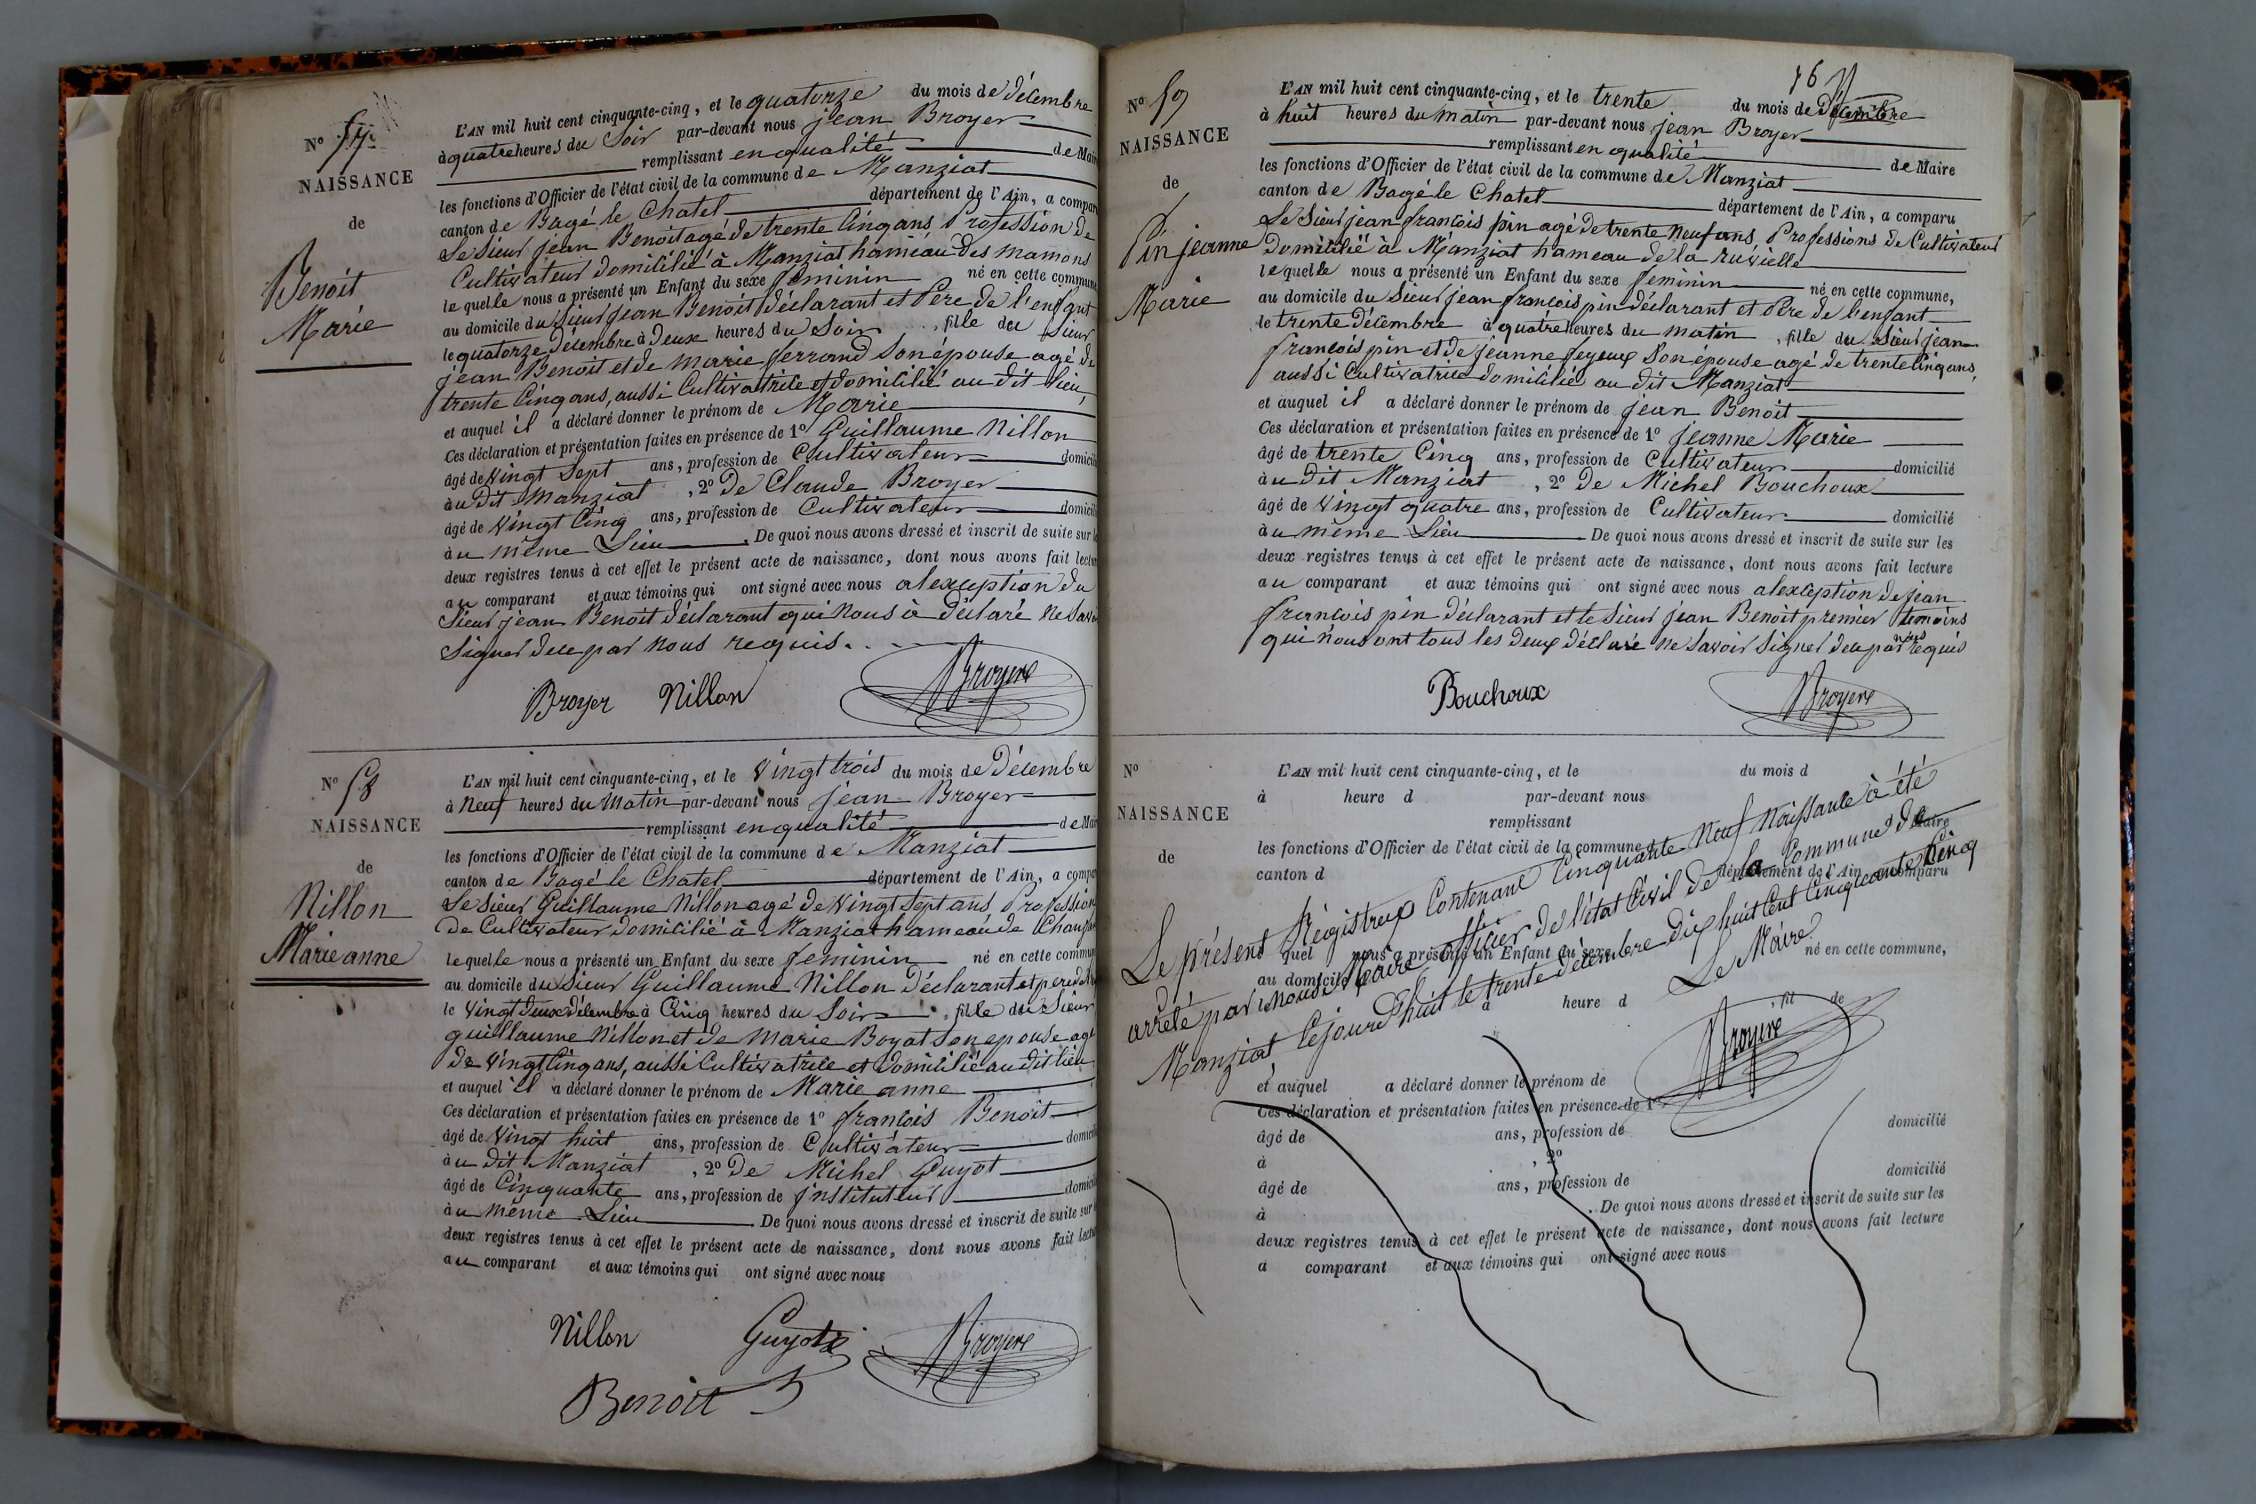 N° 57.
NAISSANCE
de
Benoit
Marie
L'AN mil huit cent cinquante-cinq, et le quatorze du mois de décembre
à quatre heures du Soir par-devant nous jean Broyer
remplissant en qualité de Maire
les fonctions d'Officier de l'état civil de la commune de Manziat
canton de Bagé le Chatel département de l'Ain, a comparu
Le Sieur jean Benoit agé de trente Cinq ans, Profession de
Cultivateur domicilié à Manziat hamiau des mamons
le quelle nous a présenté un Enfant du sexe féminin né en cette commune
au domicile du Sieur jean Benoit déclarant et Père de l'enfant
le quatorze décembre à Deux heures du Soir, fille du Sieur
jean Benoit et de marie ferrand Son épouse agé de
trente Cinq ans, aussi Cultivatrice et domicilié au dit Lieu,
et auquel il a déclaré donner le prénom de Marie
Ces déclaration et présentation faites en présence de 1° Guillaume Nillon
âgé de Vingt Sept ans, profession de Cultivateur domicilié
à u dit Manziat, 2° de Claude Broyer
âgé de Vingt Cinq ans, profession de Cultivateur domicilié
à u même Lieu. De quoi nous avons dressé et inscrit de suite sur les
deux registres tenus à cet effet le présent acte de naissance, dont nous avons fait lecture
au comparant et aux témoins qui ont signé avec nous alexception du
Sieur jean Benoit déclarant qui Nous à déclaré Ne Savoir
Signer de ce par Nous requis.
Broyer Nillon Broyere
N° 58
NAISSANCE
de
Nillon
Marie anne
L'AN mil huit cent cinquante-cinq, et le Vingt trois du mois de Décembre
à Neuf heures du Matin par-devant nous jean Broyer
remplissant en qualité de Maire
les fonctions d'Officier de l'état civil de la commune de Manziat
canton de Bagé le Chatel département de l'Ain, a comparu
Le Sieur Guillaume Nillon agé de Vingt Sept ans Profession
de Cultivateur domicilié à Manziat hameau de
le quelle nous a présenté un Enfant du sexe feminin né en cette commune
au domicile du Sieur Guillaume Nillon Déclarant et pere de
le Vingt Deux décembre à Cinq heures du Soir, fille du Sieur
guillaume Nillon et de Marie Boyat Son epouse agé
de Vingt Cinq ans, aussi Cultivatrice et domicilié au dit lieu
et auquel il a déclaré donner le prénom de Marie anne
Ces déclaration et présentation faites en présence de 1° francois Benoit
âgé de Vingt huit ans, profession de Cultivateur domicilié
à u dit Manziat, 2° De Michel Guyot
âgé de Cinquante ans, profession de jnstituteur domicilié
à u même Lieu. De quoi nous avons dressé et inscrit de suite sur les
deux registres tenus à cet effet le présent acte de naissance, dont nous avons fait lecture
au comparant et aux témoins qui ont signé avec nous
Nillon Guyot Broyere
Benoit
76
N° 59
NAISSANCE
de
Pin jeanne
Marie
L'AN mil huit cent cinquante-cinq, et le trente du mois de décembre
à huit heures du matin par-devant nous jean Broyer
remplissant en qualité de Maire
les fonctions d'Officier de l'état civil de la commune de Manziat
canton de Bagé le Chatel département de l'Ain, a comparu
Le Sieur jean francois pin agé de trente Neuf ans Professions de Cultivateur
domicilié à Manziat hameau de la
le quelle nous a présenté un Enfant du sexe feminin né en cette commune,
au domicile du Sieur jean francois pin déclarant et Père de l'enfant
le trente Décembre à quatre heures du matin, fille du Sieur jean
francois pin et de jeanne feyeux Son épouse agé de trente Cinq ans,
aussi Cultivatrice domiciliée au dit Manziat
et auquel il a déclaré donner le prénom de jean Benoit
Ces déclaration et présentation faites en présence de 1° jeanne Marie
âgé de trente Cinq ans, profession de Cultivateur domicilié
à u dit Manziat, 2° de Michel Bouchoux
âgé de Vingt quatre ans, profession de Cultivateur domicilié
à u même Lieu. De quoi nous avons dressé et inscrit de suite sur les
deux registres tenus à cet effet le présent acte de naissance, dont nous avons fait lecture
au comparant et aux témoins qui ont signé avec nous alexception de jean
francois pin déclarant et le Sieur jean Benoit premier temoins
qui nous ont tous les Deux déclaré Ne Savoir Signer de ce par nous requis
Bouchoux Broyere
N°
NAISSANCE
de
L'AN mil huit cent cinquante-cinq, et le du mois d
à heure d par-devant nous
remplissant Maire
les fonctions d'Officier de l'état civil de la commune d
canton d département de l'Ain, a comparu
Le présent Régistreux Contenant Cinquante Neuf Naissance à été
arrêté par Nous Maire officier de l'état Civil de la Commune de
Manziat Cejourd'huit le trente décembre dix huit Cent Cinquante Cinq
Le Maire
Broyere
quel nous a présenté un Enfant du sexe né en cette commune,
au domicile
le à heure d , fil de
et auquel a déclaré donner le prénom de
Ces déclaration et présentation faites en présence de 1°
âgé de ans, profession de domicilié
à , 2°
âgé de ans, profession de domicilié
à . De quoi nous avons dressé et inscrit de suite sur les
deux registres tenus à cet effet le présent acte de naissance, dont nous avons fait lecture
a comparant et aux témoins qui ont signé avec nous